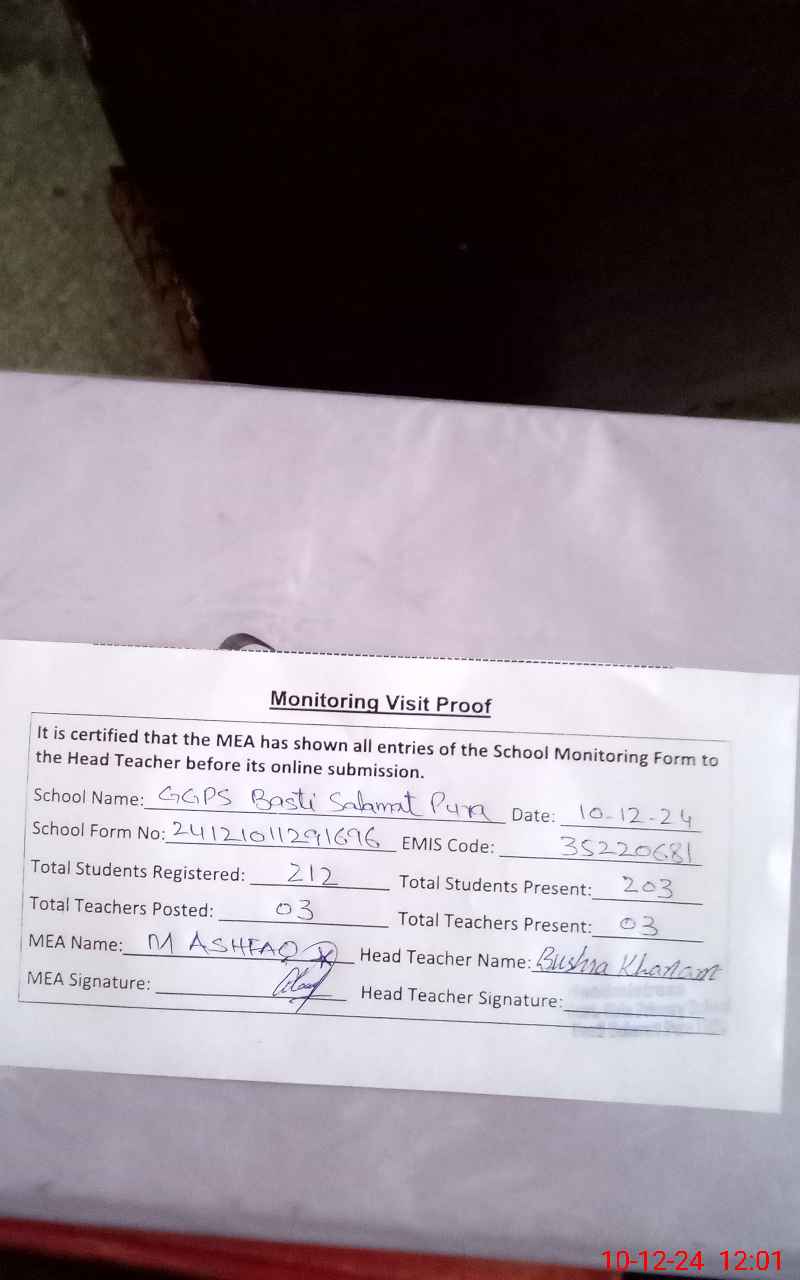 Monitoring Visit Proof
It is certified that the MEA has shown all entries of the School Monitoring Form to
the Head Teacher before its online submission.
School Name: GGPS Basti Salamat Pura Date: 10-12-24
School Form No: 24121011291696 EMIS Code: 35220681
Total Students Registered: 212 Total Students Present: 203
Total Teachers Posted: 03 Total Teachers Present: 03
MEA Name: M ASHFAQ Head Teacher Name: Bushra Khanam
MEA Signature: Head Teacher Signature:
10-12-24 12:01